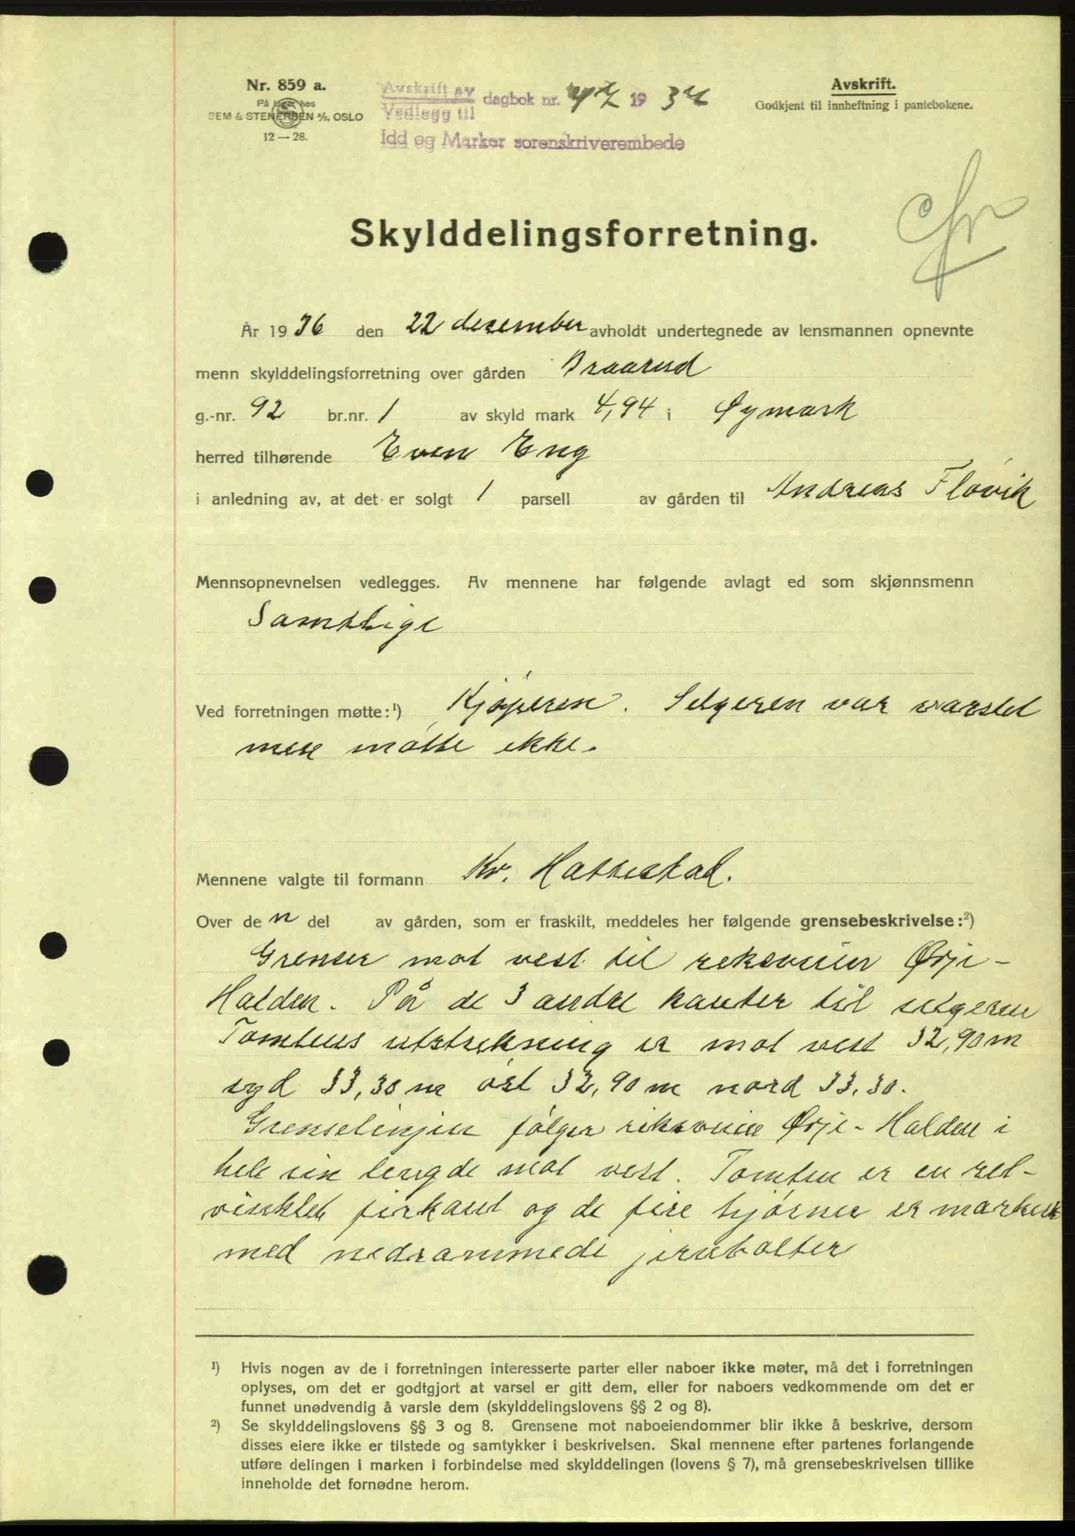 Nr. 859 a.
På lager hos
SEM & STENERSEN A/S, OSLO
12 — 28.
Avskrift av
Vedlegg til
dagbok nr. 47 19 37
Idd og Marker sorenskriverembede
Avskrift.
Godkjent til innheftning i pantebøkene.
Skylddelingsforretning.
År 1936 den 22 desember avholdt undertegnede av lensmannen opnevnte
menn skylddelingsforretning over gården Braarud
g.-nr. 92 br.nr. 1 av skyld mark 4,94 i Øymark
herred tilhørende Even Eng
i anledning av, at det er solgt 1 parsell av gården til Andreas Fløvik
Mennsopnevnelsen vedlegges. Av mennene har følgende avlagt ed som skjønnsmenn
Samtlige
Ved forretningen møtte:¹) Kjøperen. Selgeren var varslet
men møtte ikke.
Mennene valgte til formann Kr. Hattestad.
Over den del av gården, som er fraskilt, meddeles her følgende grensebeskrivelse:²)
Grenser mot vest til reksveien Ørje-
Halden. På de 3 andre kanter til selgeren
Tomtens utstrekning er mot vest 32,90 m
syd 33,30 m øst 32,90 m nord 33,30.
Grenselinjen følger riksveien Ørje-Halden i
hele sin lengde mot vest. Tomten er en ret-
vinklet firkant og de fire hjørner er merket
med nedrammede jernbolter
¹) Hvis nogen av de i forretningen interesserte parter eller naboer ikke møter, må det i forretningen
oplyses, om det er godtgjort at varsel er gitt dem, eller for naboers vedkommende om det er
funnet unødvendig å varsle dem (skylddelingslovens §§ 2 og 8).
²) Se skylddelingslovens §§ 3 og 8. Grensene mot naboeiendommer blir ikke å beskrive, dersom
disses eiere ikke er tilstede og samtykker i beskrivelsen. Skal mennene efter partenes forlangende
utføre delingen i marken i forbindelse med skylddelingen (lovens § 7), må grensebeskrivelsen tillike
inneholde det fornødne herom.